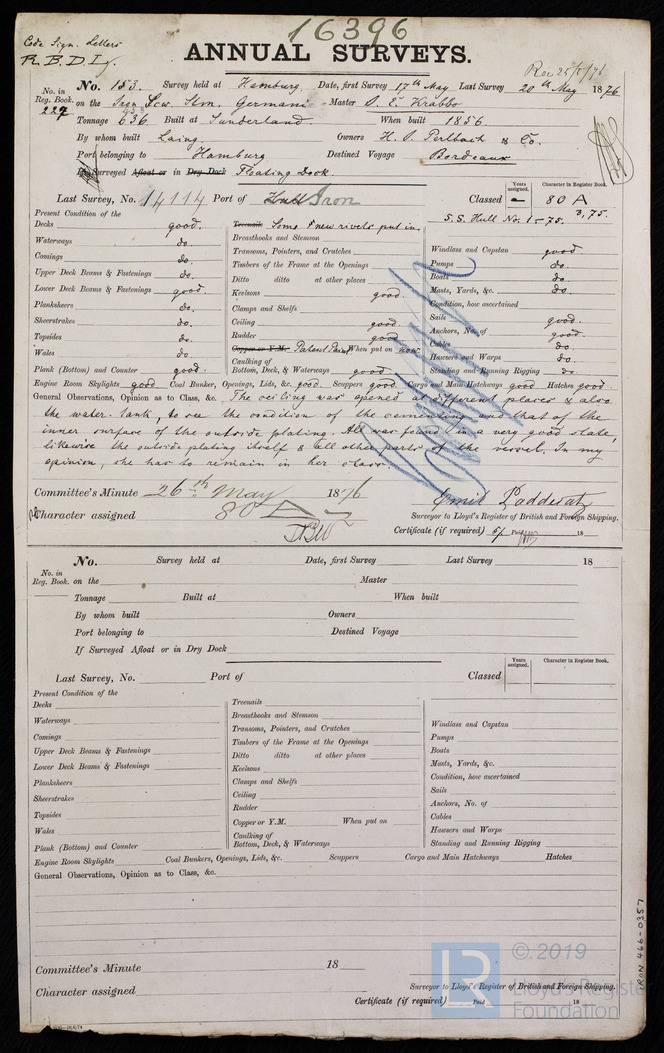 16396
Code Sign. Letters
R.B.D.L.
ANNUAL SURVEYS.
Rec 25/5/76
No. in Reg. Book. 227
No. 153. Survey held at Hamburg Date, first Survey 17th May Last Survey 20th May 1876
on the Iron Scw. Stm. Germania Master S. E. Krabbo
Tonnage 636 Built at Sunderland. When built 1856.
By whom built Laing. Owners H. J. Perlbach & Co.
Port belonging to Hamburg Destined Voyage Bordeaux
If Surveyed Afloat or in Dry Dock Floating Dock.
Last Survey, No. 14114 Port of Hull Iron Classed 80 A
Years assigned. Character in Register Book.
S.S. Hull No. 1-75. 3,75.
Present Condition of the
Decks good.
Waterways do.
Comings do.
Upper Deck Beams & Fastenings do.
Lower Deck Beams & Fastenings good.
Planksheers do.
Sheerstrakes do.
Topsides do.
Wales do.
Plank (Bottom) and Counter good.
Treenails Some new rivets put in.
Breasthooks and Stemson
Transoms, Pointers, and Crutches
Timbers of the Frame at the Openings
Ditto ditto at other places
Keelsons good.
Clamps and Shelfs
Ceiling good.
Rudder good.
Copper or Y.M. Patent Paint When put on now.
Caulking of
Bottom, Deck, & Waterways good.
Windlass and Capstan good.
Pumps do.
Boats do.
Masts, Yards, &c. do.
Condition, how ascertained
Sails good.
Anchors, No. of good.
Cables do.
Hawsers and Warps do.
Standing and Running Rigging do.
Engine Room Skylights good Coal Bunker, Openings, Lids, &c. good. Scuppers good. Cargo and Main Hatchways good Hatches good.
General Observations, Opinion as to Class, &c. The ceiling was opened at different places & also
the water tank, to see the condition of the cementing and that of the
inner surface of the outside plating. All was found in a very good state,
likewise the outside plating itself & all other parts of the vessel. In my
opinion, she has to remain in her class.
Committee's Minute 26th May 1876
Character assigned 80 A
Emil Padderatz
Surveyor to Lloyd's Register of British and Foreign Shipping.
Certificate (if required) 5/ Paid 18
No. in Reg. Book.
No. Survey held at Date, first Survey Last Survey 18
on the Master
Tonnage Built at When built
By whom built Owners
Port belonging to Destined Voyage
If Surveyed Afloat or in Dry Dock
Last Survey, No. Port of Classed
Years assigned. Character in Register Book.
Present Condition of the
Decks
Waterways
Comings
Upper Deck Beams & Fastenings
Lower Deck Beams & Fastenings
Planksheers
Sheerstrakes
Topsides
Wales
Plank (Bottom) and Counter
Treenails
Breasthooks and Stemson
Transoms, Pointers, and Crutches
Timbers of the Frame at the Openings
Ditto ditto at other places
Keelsons
Clamps and Shelfs
Ceiling
Rudder
Copper or Y.M. When put on
Caulking of
Bottom, Deck, & Waterways
Windlass and Capstan
Pumps
Boats
Masts, Yards, &c.
Condition, how ascertained
Sails
Anchors, No. of
Cables
Hawsers and Warps
Standing and Running Rigging
Engine Room Skylights Coal Bunkers, Openings, Lids, &c. Scuppers Cargo and Main Hatchways Hatches
General Observations, Opinion as to Class, &c.
Committee's Minute 18
Character assigned
Surveyor to Lloyd's Register of British and Foreign Shipping.
Certificate (if required) Paid 18
IRON 466-0357
LR
© 2019
Lloyd's Register
Foundation